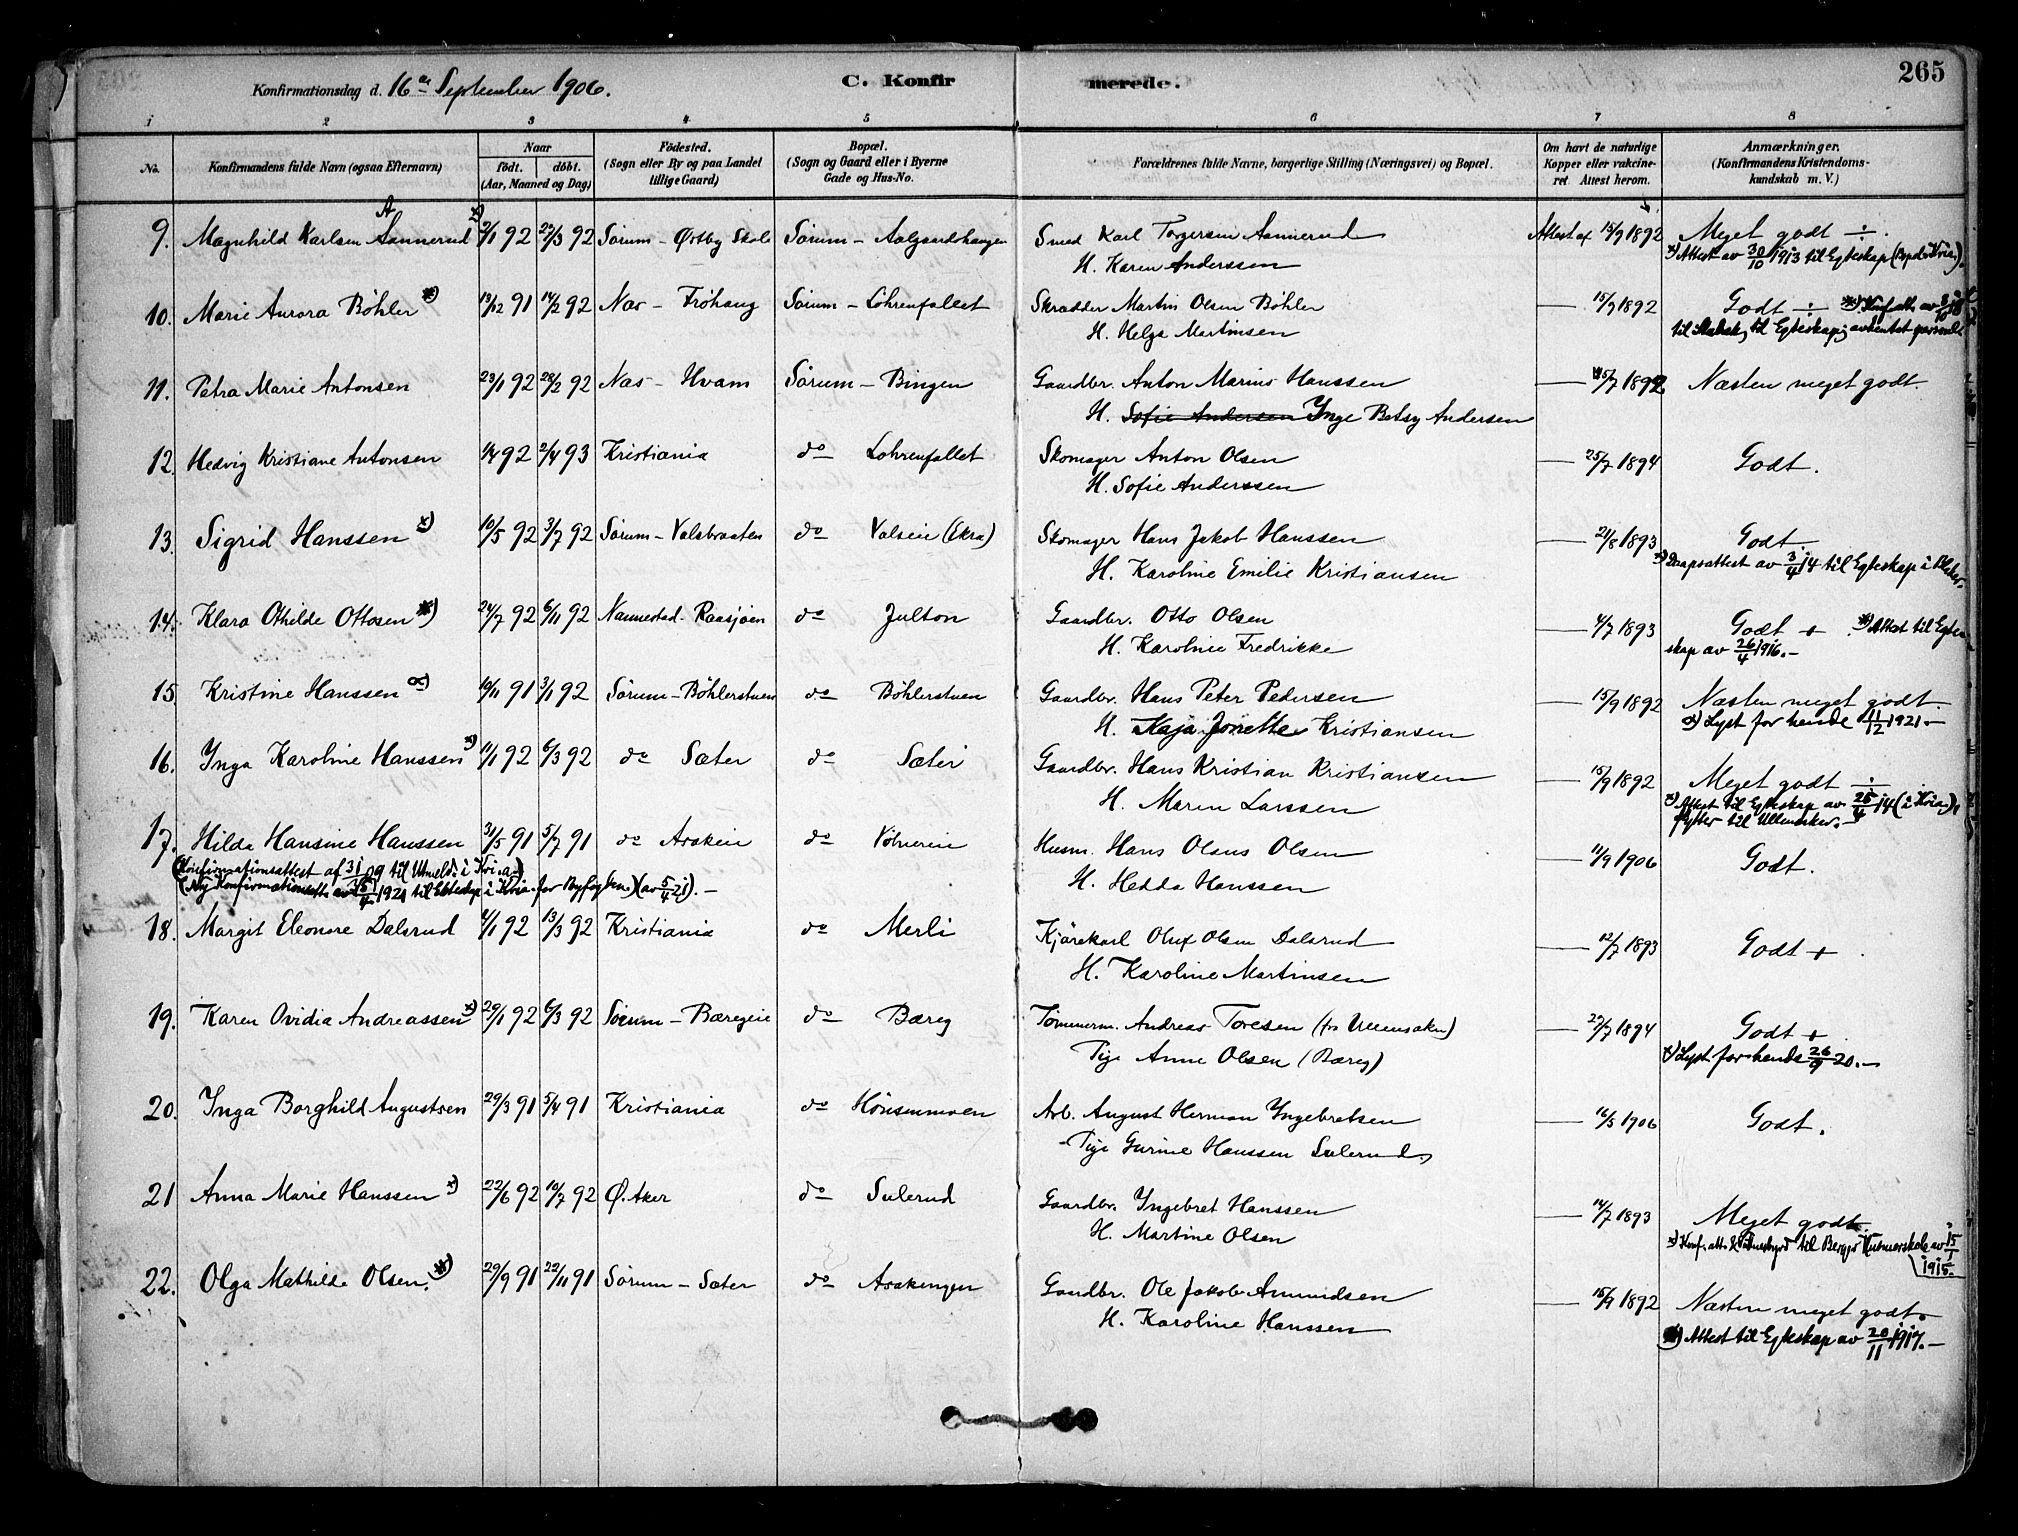 265
Konfirmationsdag d. 16de September 1906.
C. Konfirmerede.
1 2 3 4 5 6 7 8
No. Konfirmandens fulde Navn (ogsaa Efternavn) Naar født. døbt. (Aar, Maaned og Dag) Fødested. (Sogn eller By og paa Landet tillige Gaard) Bopæl. (Sogn og Gaard eller i Byerne Gade og Hus-No. Forældrenes fulde Navne, borgerlige Stilling (Næringsvei) og Bopæl. Om havt de naturlige Kopper eller vakcineret Attest herom. Anmærkninger. (Konfirmandens Kristendomskundskab m. V.)
9. Magnhild Karlsen Aannerud x) 2/1 92 27/3 92 Sørum - Østby Skole Sørum - Aalgaardhaugen Smed Karl Torgersen Aannerud Attest af 15/9 1892 Meget godt ÷.
H. Karen Anderssen x) Attest av 30/10 1913 til Egteskap (Bopæl Kria).
10. Marie Aurora Bøhler x) 13/12 91 14/2 92 Næs - Frøhaug Sørum - Løhrenfallet Skrædder Martin Olsen Bøhler — 15/9 1892 Godt ÷
H. Helga Martinsen til Egteskap; avhentet personl.
11. Petra Marie Antonsen 23/1 92 28/2 92 Næs - Hvam Sørum - Bingen Gaardbr. Anton Marius Hanssen — 15/7 1892 Næsten meget godt
H. Sofie Andersen Inge Betsy Andersen
12. Hedvig Kristiane Antonsen 1/4 92 2/4 93 Kristiania do Løhrenfallet Skomager Anton Olsen — 25/7 1894 Godt.
H. Sofie Anderssen
13. Sigrid Hanssen x) 10/5 92 3/7 92 Sørum - Valsbraaten do Valseie (Ekra) Skomager Hans Jakob Hanssen — 21/8 1893 Godt
H. Karoline Emilie Kristiansen x) Daapsattest av 3/4 14 til Egteskap i
14. Klara Othilde Ottosen x) 24/7 92 6/11 92 Nannestad - Raasjøen do Julton Gaardbr. Otto Olsen — 4/7 1893 Godt + x) Attest til Egte-
H. Karoline Fredrikke skap av 26/4 1916.-
15. Kristine Hanssen α) 10/11 91 3/1 92 Sørum - Bøhlerstuen do Bøhlerstuen Gaardbr. Hans Peter Pedersen — 15/9 1892 Næsten meget godt.
H. Kaja Jonette Kristiansen α) Lyst for hende 11/12 1921.-
16. Inga Karoline Hanssen x) 11/1 92 6/3 92 do Sæter do Sæter Gaardbr. Hans Kristian Kristiansen — 15/9 1892 Meget godt ÷
H. Maren Larssen x) Attest til Egteskap av 25/4 14 (i Kria),
flytter til Ullensaker.-
17. Hilda Hansine Hanssen 31/5 91 5/7 91 do Asakeie do Vølneeie Husm. Hans Olaus Olsen — 11/9 1906 Godt.
H. Hedda Hanssen
(Konfirmationsattest af 31/ 09 til Utmeld. i Kria.)
(Ny Konfirmationsatt. av 5/4 1921 til Egteskap i Kria. for Byfogden) (av 5/4 21).-
18. Margit Eleonore Dalsrud 4/1 92 13/3 92 Kristiania do Merli Kjørekarl Oluf Olsen Dalsrud — 12/7 1893 Godt +
H. Karoline Martinsen
19. Karen Ovidia Andreassen x) 29/1 92 6/3 92 Sørum - Bæregeie do Bæreg Tømmerm. Andreas Toresen (fra Ullensaker) — 27/7 1894 Godt +
Pige Anne Olsen (Bæreg) x) Lyst for hende 26/9 20.-
20. Inga Borghild Augustsen 29/3 91 5/4 91 Kristiania do Hønsemmoen Arb. August Herman Ingebretsen — 16/5 1906 Godt.
Pige Gurine Hanssen Sulerud
21 Anna Marie Hanssen x) 22/6 92 10/7 92 Ø. Aker do Sulerud Gaardbr. Ingebret Hanssen — 14/7 1893 Meget godt.
H. Martine Olsen x) Konf. att. til Bergs Husmorskole av 15/1 1915.
22. Olga Mathilde Olsen. x) 29/9 91 22/11 91 Sørum - Sæter do Asakengen Gaardbr. Ole Jakob Amundsen — 15/9 1892 Næsten meget godt.
H. Karoline Hanssen x) Attest til Egteskap av 20/11 1917.-